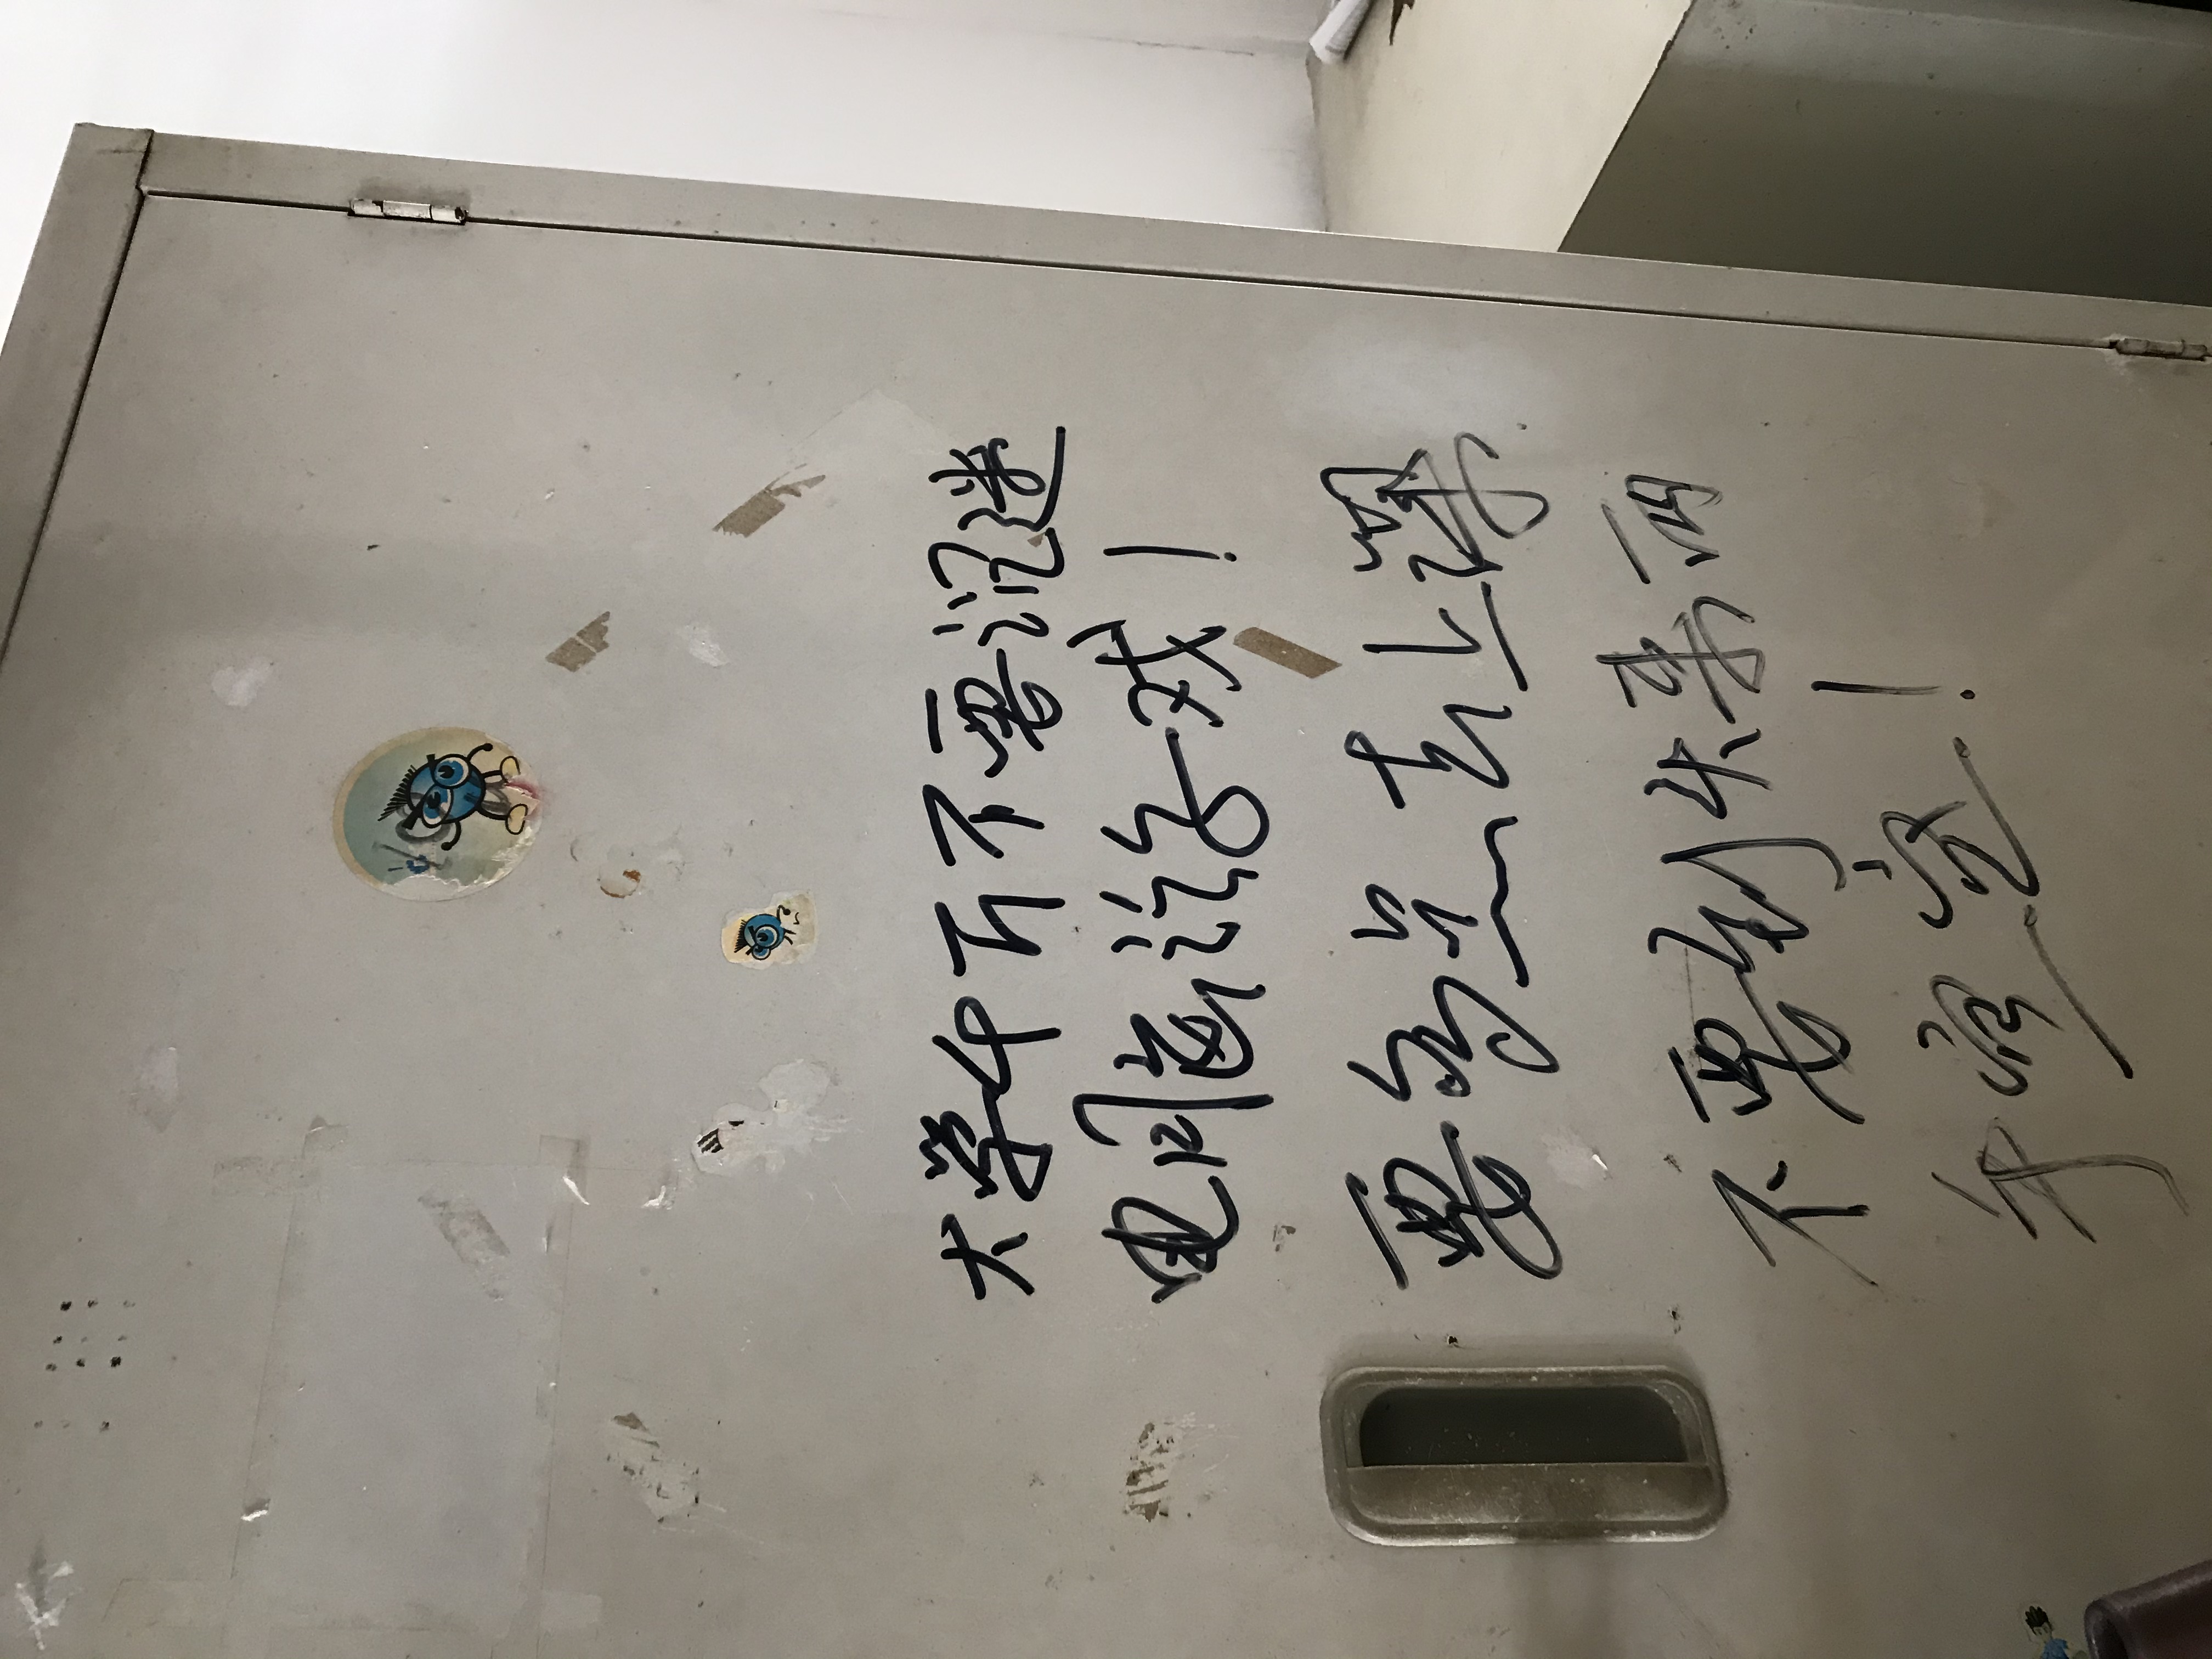 大学千万不要沉迷
电脑游戏！
要多点去上课
不要到头来两
手空空！